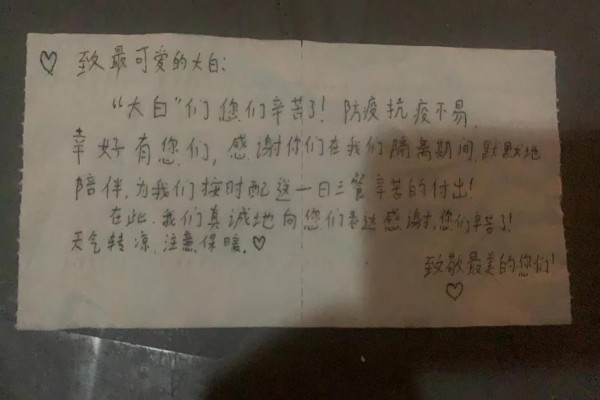 ♡ 致最可爱的大白:
"大白"们您们辛苦了! 防疫抗疫不易,
幸好有您们, 感谢你们在我们隔离期间,默默地
陪伴,为我们按时配送一日三餐辛苦的付出!
在此,我们真诚地向您们表达感谢,您们辛苦了!
天气转凉,注意保暖。♡
致敬最美的您们!
♡